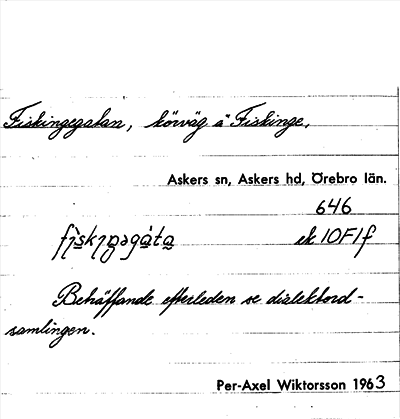 Fiskingegatan, körväg å Fiskinge,
Askers sn, Askers hd, Örebro län.
646
ek 10F1f
Behäffande efterleden se dialektord-
samlingen.
Per-Axel Wiktorsson 1963